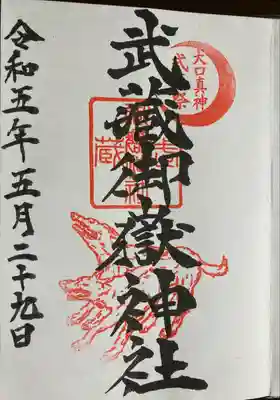 大口真神
式年祭
武蔵御嶽神社
令和五年五月二十九日